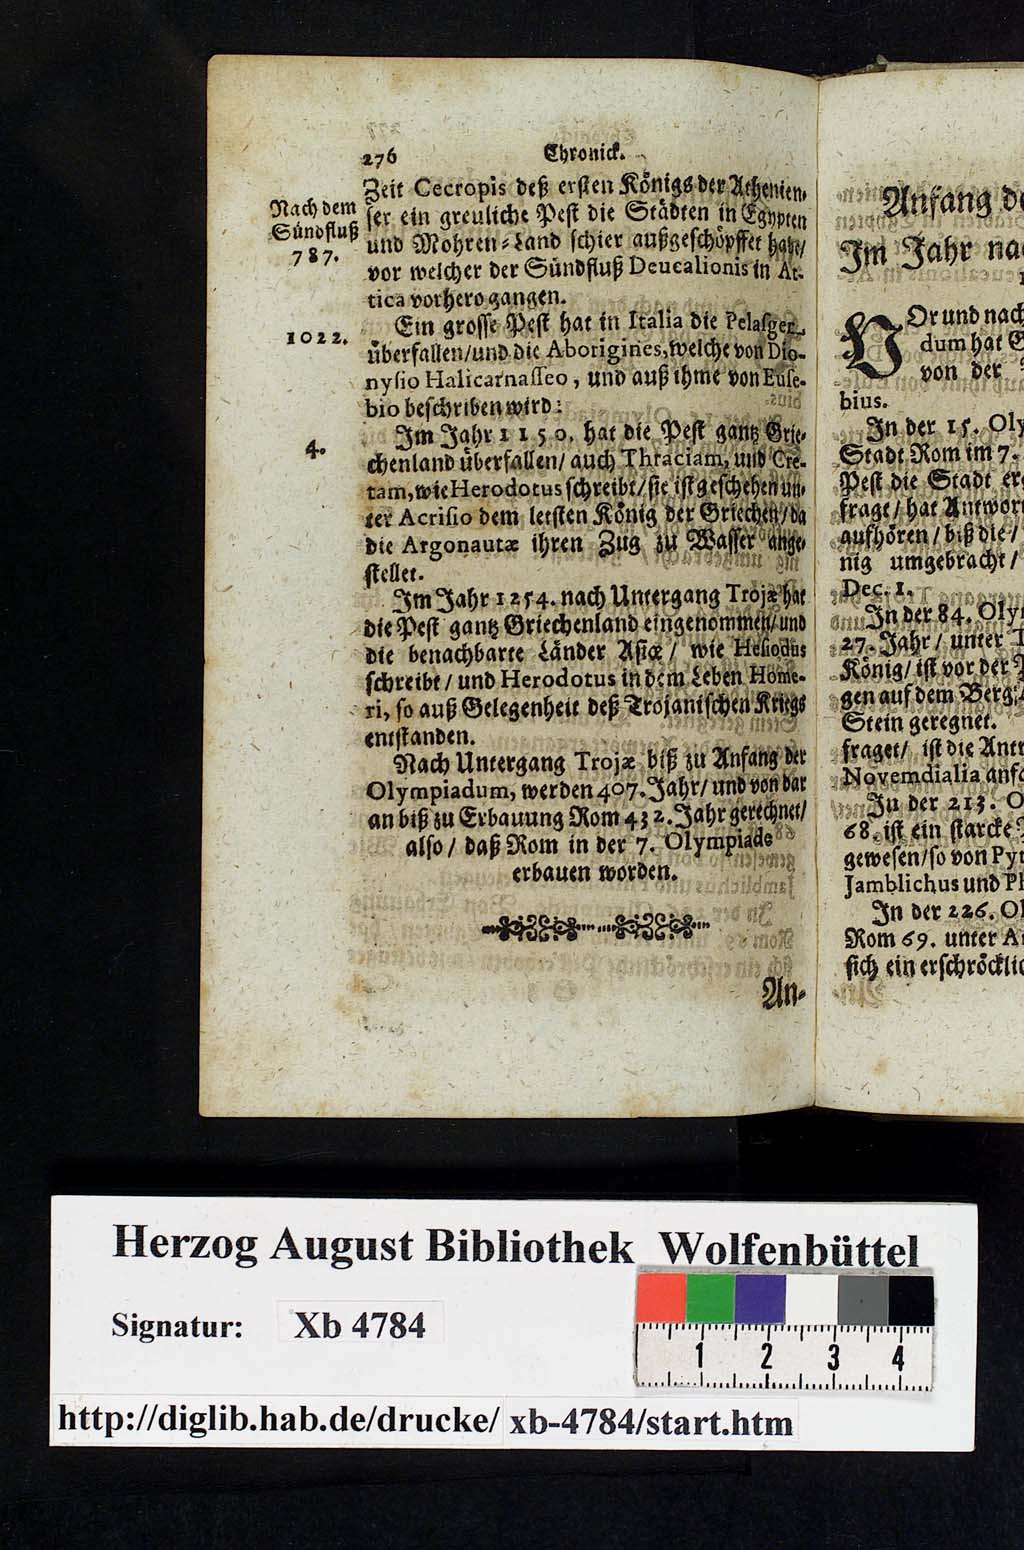 276 Chronick.
Nach dem
Sündfluß
787.
Zeit Cecropis deß ersten Königs der Athenien-
ser ein greuliche Pest die Städten in Egypten
und Mohren-Land schier außgeschöpffet habe/
vor welcher der Sündfluß Deucalionis in At-
tica vorhero gangen.
1022.
Ein grosse Pest hat in Italia die Pelasger
überfallen/und die Aborigines, welche von Dio-
nysio Halicarnasseo, und auß ihme von Euse-
bio beschriben wird:
4.
Im Jahr 1150. hat die Pest gantz Grie-
chenland überfallen/ auch Thraciam, und Cre-
tam, wie Herodotus schreibt/ sie ist geschehen un-
ter Acrisio dem letsten König der Griechen/ da
die Argonautæ ihren Zug zu Wasser ange-
stellet.
Im Jahr 1254. nach Untergang Trojæ hat
die Pest gantz Griechenland eingenommen/ und
die benachbarte Länder Asiæ/ wie Hesiodus
schreibt/ und Herodotus in dem Leben Home-
ri, so auß Gelegenheit deß Trojanischen Kriegs
entstanden.
Nach Untergang Trojæ biß zu Anfang der
Olympiadum, werden 407. Jahr/ und von dar
an biß zu Erbauung Rom 432. Jahr gerechnet/
also/ daß Rom in der 7. Olympiade
erbauen worden.
An-
Anfang
Im Jahr
VOr und nach
dum hat
von der
bius.
In der 15.
Stadt Rom im 7.
Pest die Stadt
frage/ hat
aufhören/ biß die/
nig umgebracht/
Dec. 1.
In der 84.
27. Jahr/ unter
König/ ist vor der
gen auf dem Berg
Stein geregnet.
fraget/ ist die
Novemdialia
In der 213.
68. ist ein starcke
gewesen/ so von
Jamblichus und
In der 226.
Rom 69. unter
sich ein
Herzog August Bibliothek Wolfenbüttel
Signatur: Xb 4784
1 2 3 4
http://diglib.hab.de/drucke/ xb-4784/start.htm